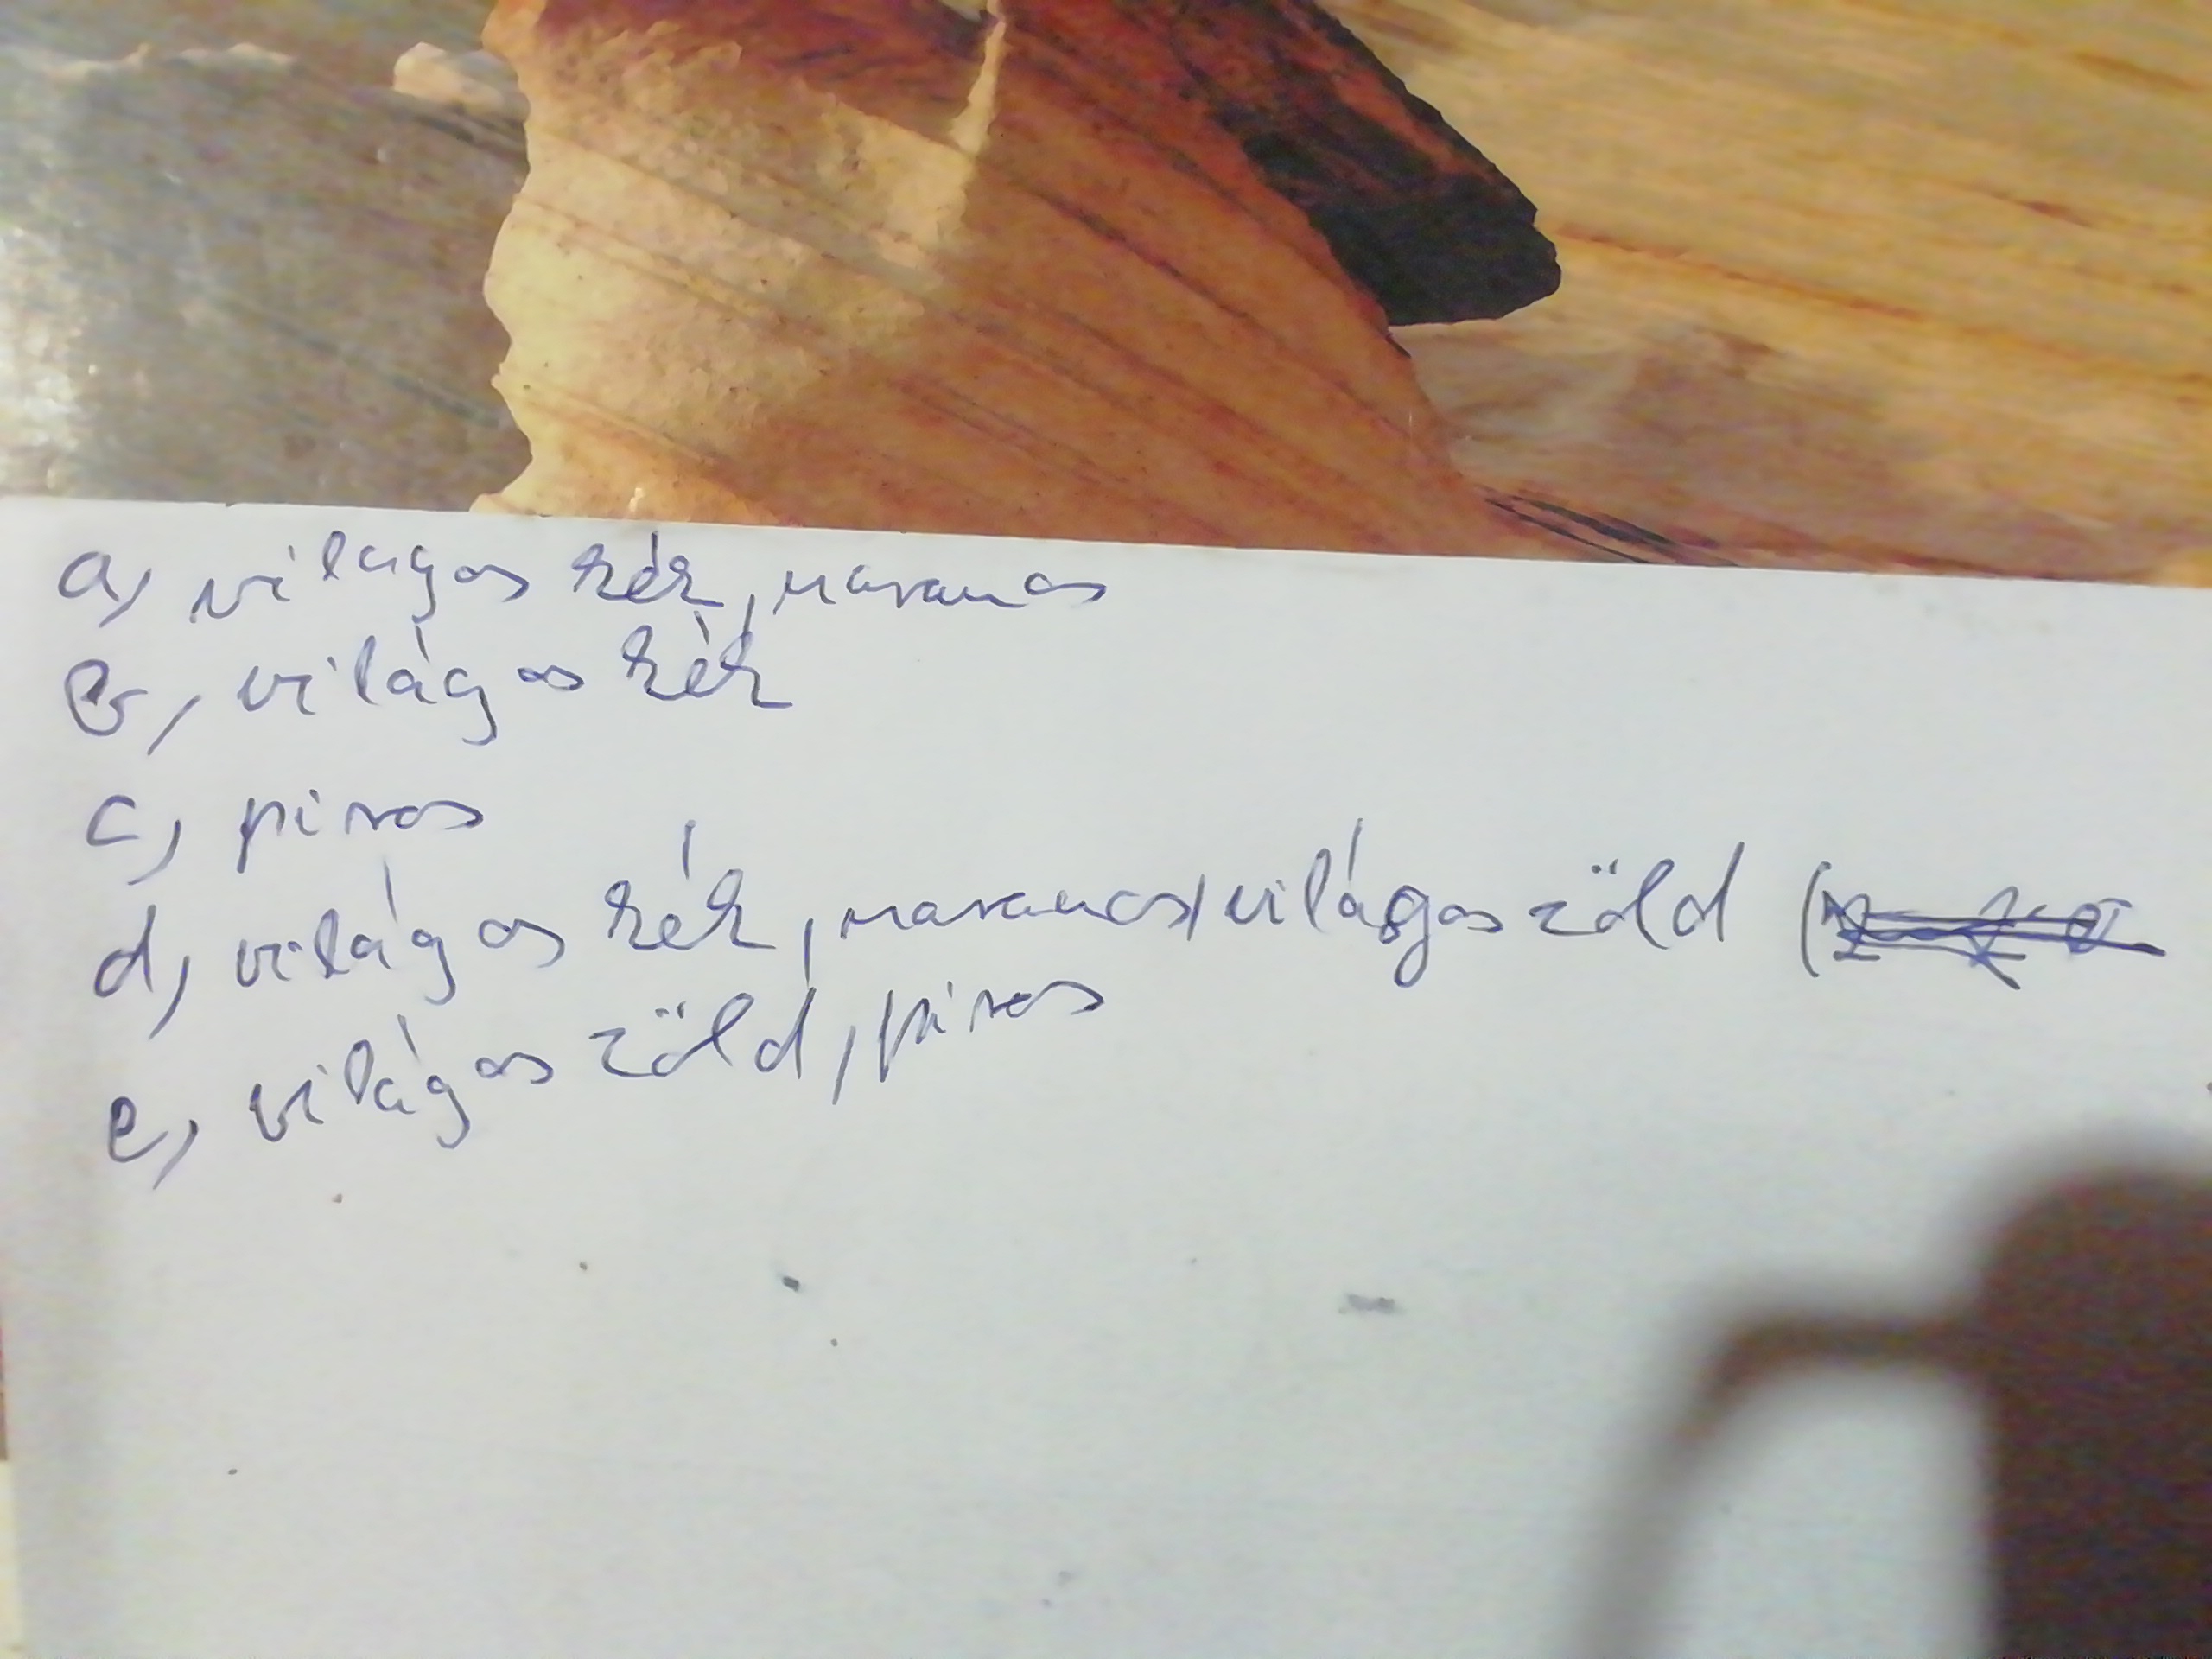 a, világos kék, narancs
b, világos kék
c, piros
d, világos kék, narancs, világos zöld (
e, világos zöld, piros